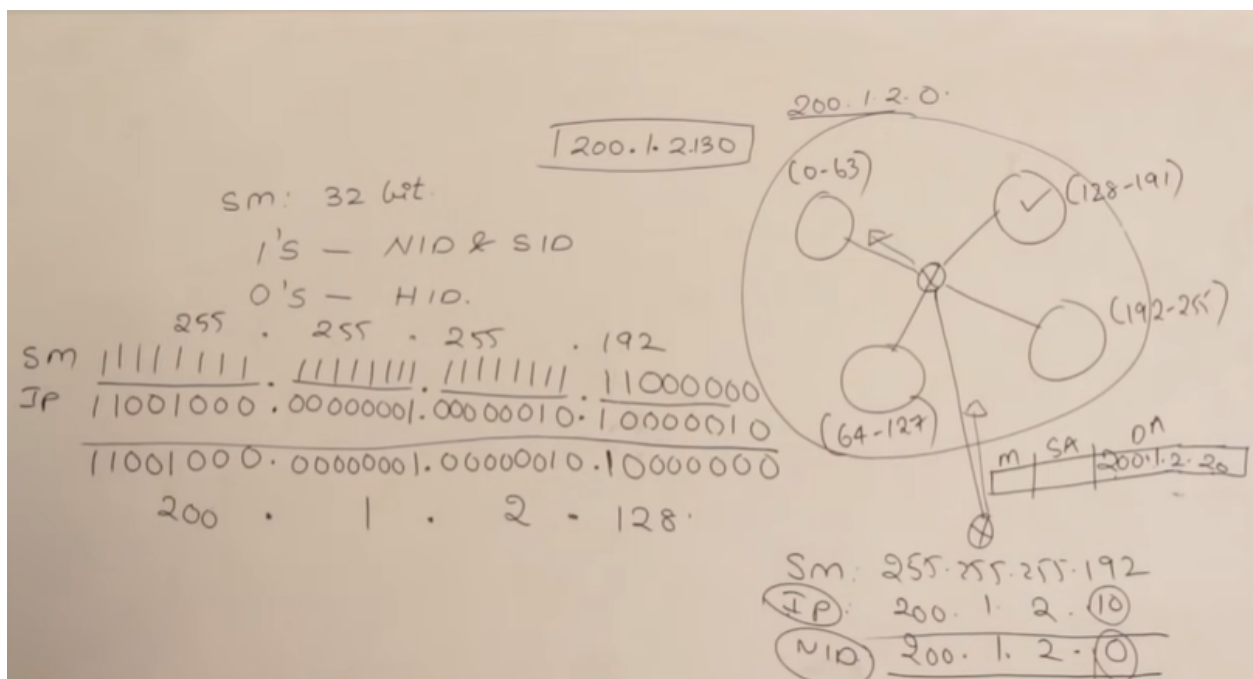 200.1.2.0.
200.1.2.130
(0-63)
(128-191)
SM: 32 bit.
1's - NID & SID
0's - HID.
(192-255)
255 . 255 . 255 . 192
SM 11111111 . 11111111 . 11111111 . 11000000
IP 11001000 . 00000001 . 00000010 . 10000010
11001000 . 00000001 . 00000010 . 10000000
200 . 1 . 2 . 128.
(64-127)
M SA DA
200.1.2.20
SM: 255.255.255.192
IP: 200. 1. 2. 10
NID 200. 1. 2. 0